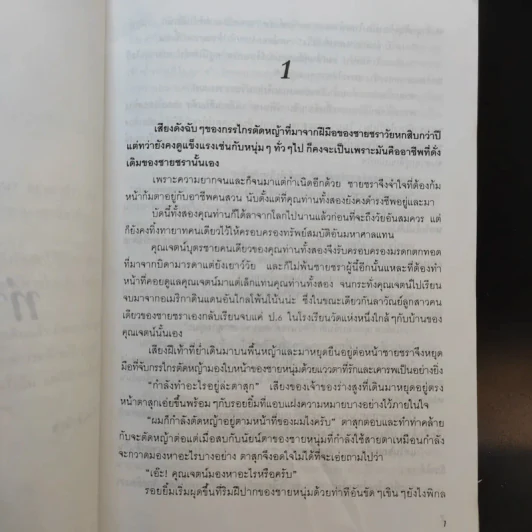 1
เสียงดังฉับ ๆ ของกรรไกรตัดหญ้าที่มาจากฝีมือของชายชราวัยหกสิบกว่าปี
แต่ทว่ายังคงดูแข็งแรงเช่นกับหนุ่ม ๆ ทั่ว ๆ ไป ก็คงจะเป็นเพราะมันคืออาชีพที่ดั่ง
เดิมของชายชรานั้นเอง
เพราะความยากจนและก็จนมาแต่กำเนิดอีกด้วย ชายชราจึงจำใจที่ต้องก้ม
หน้าก้มตาอยู่กับอาชีพคนสวน นับตั้งแต่ที่คุณท่านทั้งสองยังคงดำรงชีพอยู่และมา
บัดนี้ทั้งสองคุณท่านก็ได้ลาจากโลกไปนานแล้วก่อนที่จะถึงวัยอันสมควร แต่
ก็ยังคงทิ้งทายาทคนเดียวไว้ให้ครอบครองทรัพย์สมบัติอันมหาศาลแทน
คุณเจตน์บุตรชายคนเดียวของคุณท่านทั้งสองจึงรับครอบครองมรดกตกทอด
ที่มาจากบิดามารดาแต่ยังเยาว์วัย และก็ไม่พ้นชายชราผู้นี้อีกนั้นแหละที่ต้องทำ
หน้าที่คอยดูแลคุณเจตน์มาแต่เล็กแทนคุณท่านทั้งสอง จนกระทั่งคุณเจตน์ไปเรียน
จบมาจากอเมริกาดินแดนอันไกลโพ้นโน้นนะ ซึ่งในขณะเดียวกันลาวัณย์ลูกสาวคน
เดียวของชายชราเองกลับเรียนจบแค่ ป.๖ ในโรงเรียนวัดแห่งหนึ่งใกล้ ๆ กับบ้านของ
คุณเจตน์นั้นเอง
เสียงฝีเท้าที่ย่ำเดินมาบนพื้นหญ้าและมาหยุดยืนอยู่ต่อหน้าชายชราจึงหยุด
มือที่จับกรรไกรตัดหญ้ามองใบหน้าของชายหนุ่มด้วยแววตาที่รักและเคารพเป็นอย่างยิ่ง
“กำลังทำอะไรอยู่ล่ะตาสุก” เสียงของเจ้าของร่างสูงที่เดินมาหยุดอยู่ตรง
หน้าตาสุกเอ่ยขึ้นพร้อม ๆ กับรอยยิ้มที่แอบแฝงความหมายบางอย่างไว้ภายในใจ
“ผมก็กำลังตัดหญ้าอยู่ตามหน้าที่ของผมไงครับ” ตาสุกตอบและทำท่าคล้าย
กับจะตัดหญ้าต่อแต่เมื่อสบกับนัยน์ตาของชายหนุ่มที่กำลังใช้สายตาเหมือนกำลัง
จะกวาดมองหาอะไรบางอย่าง ตาสุกจึงอดใจไม่ได้ที่จะเอ่ยถามไปว่า
“เอ๊ะ! คุณเจตน์มองหาอะไรหรือครับ”
รอยยิ้มเริ่มผุดขึ้นที่ริมฝีปากของชายหนุ่มด้วยท่าทีอันขัด ๆ เขิน ๆ ยังไงพิกล
1